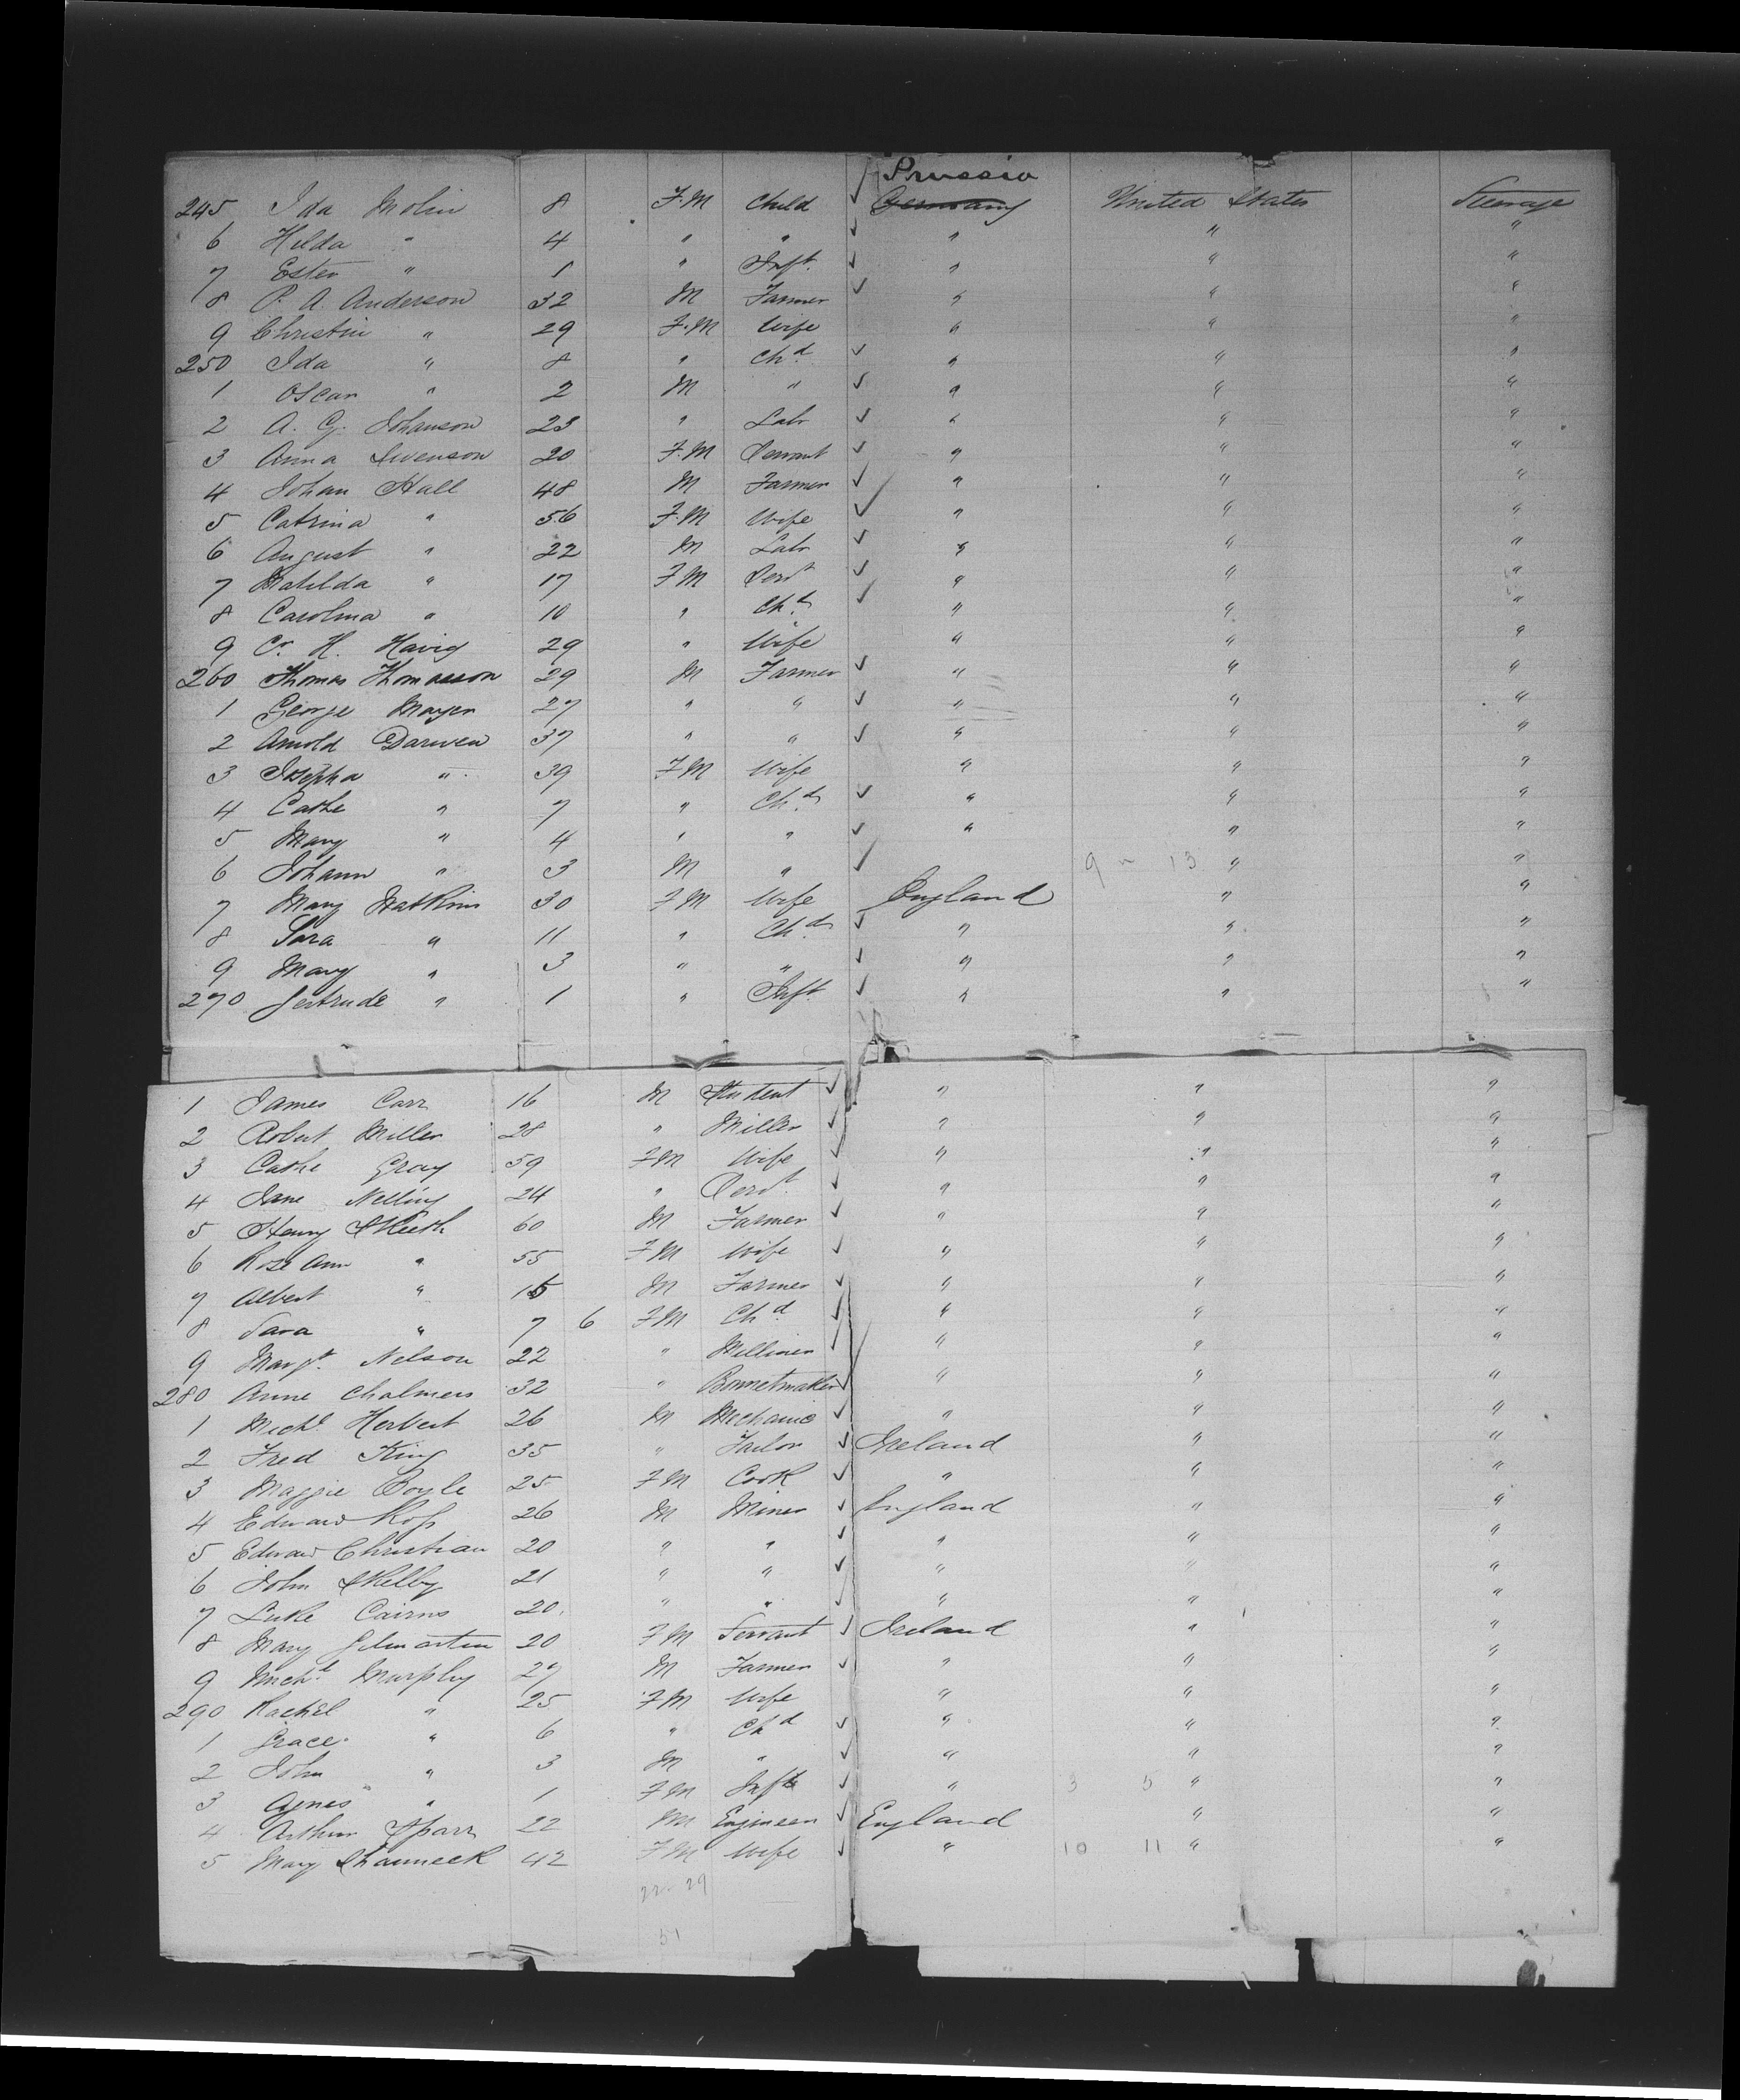 Prussia
245 Ida Molin 8 F.M Child ✓ Germany United States Steerage
6 Hilda " 4 " " ✓ " " "
7 Ester " 1 " Inft. ✓ " " "
8 P. A. Anderson 32 M Farmer ✓ " " "
9 Christin " 29 F.M Wife " " "
250 Ida " 8 " Chd ✓ " " "
1 Oscar " 2 M " ✓ " " "
2 A. G. Johanson 23 " Labr ✓ " " "
3 Anna Swenson 20 F.M Servant ✓ " " "
4 Johan Hall 48 M Farmer ✓ " " "
5 Catrina " 56 F.M Wife ✓ " " "
6 August " 22 M Labr ✓ " " "
7 Matilda " 17 F M Servt ✓ " " "
8 Carolina " 10 " Chd ✓ " " "
9 H. Havig 29 " Wife " " "
260 Thomas Thomasson 29 M Farmer ✓ " " "
1 George Mayer 27 " " ✓ " " "
2 Arnold Darwen 37 " " ✓ " " "
3 Josepha " 39 F M Wife " " "
4 Cathe " 7 " Chd ✓ " " "
5 Mary " 4 " " ✓ " " "
6 Johann " 3 M " ✓ 9 13 " "
7 Mary Watkins 30 F M Wife England " "
8 Sara " 11 " Chd ✓ " " "
9 Mary " 3 " " ✓ " " "
270 Gertrude " 1 " Inft ✓ " " "
1 James Carr 16 M Student ✓ " " "
2 Robert Miller 28 " Miller ✓ " " "
3 Cathe Gray 59 F M Wife ✓ " " "
4 Jane Nelling 24 " Servt. ✓ " " "
5 Henry Skeeth 60 M Farmer ✓ " " "
6 Rose Ann " 55 F M Wife ✓ " " "
7 Albert " 15 M Farmer ✓ " " "
8 Sara " 7 6 F M Chd ✓ " " "
9 Margt. Nelson 22 " Milliner ✓ " " "
280 Anne Chalmers 32 " Bonnetmaker ✓ " " "
1 Michl Herbert 26 M Mechanic ✓ " " "
2 Fred King 35 " Tailor ✓ Ireland " "
3 Maggie Boyle 25 F M Cook ✓ " " "
4 Edward Ross 26 M Miner ✓ England " "
5 Edward Christian 20 " " ✓ " " "
6 John Skelby 21 " " ✓ " " "
7 Luke Cairns 20 " " ✓ " " "
8 Mary Gilmartin 20 F M Servant ✓ Ireland " "
9 Michl Murphy 27 M Farmer ✓ " " "
290 Rachel " 25 F M Wife " " "
1 Grace " 6 " Chd ✓ " " "
2 John " 3 M " ✓ " " "
3 Agnes " 1 F M Inft ✓ " 3 5 " "
4 Arthur Sparr 22 M Engineer ✓ England " "
5 Mary Shanneck 42 F M Wife ✓ " 10 11 " "
22 29
51